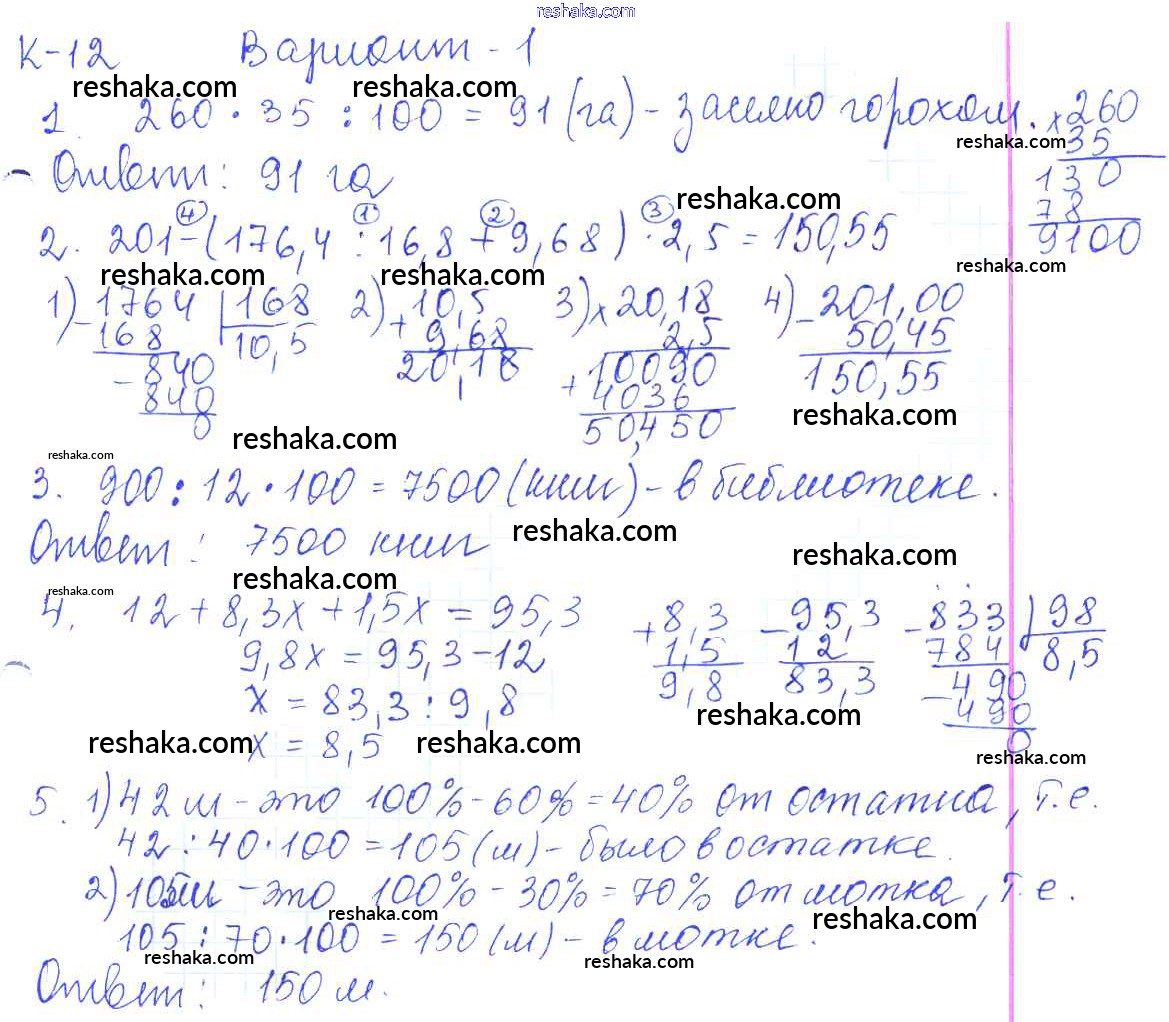 reshaka.com
К-12 Вариант - 1
reshaka.com reshaka.com
1. 260 · 35 : 100 = 91 (га) - засеяно горохом. × 260
35
reshaka.com
130
78
9100
Ответ: 91 га
reshaka.com
④ ① ② ③
2. 201 - (176,4 : 16,8 + 9,68) · 2,5 = 150,55
reshaka.com reshaka.com reshaka.com
1) - 1764 | 168
168 10,5
- 840
840
0
2) + 10,5
9,68
20,18
3) × 20,18
2,5
+ 10090
4036
50,450
4) - 201,00
50,45
150,55
reshaka.com
reshaka.com
reshaka.com
3. 900 : 12 · 100 = 7500 (книг) - в библиотеке.
reshaka.com
Ответ: 7500 книг
reshaka.com
reshaka.com
reshaka.com
4. 12 + 8,3x + 1,5x = 95,3
9,8x = 95,3 - 12
x = 83,3 : 9,8
x = 8,5
+ 8,3
1,5
9,8
- 95,3
12
83,3
- 833 | 98
784 8,5
- 490
490
0
reshaka.com
reshaka.com reshaka.com
reshaka.com
5. 1) 42 м - это 100% - 60% = 40% от остатка, т.е.
42 : 40 · 100 = 105 (м) - было в остатке.
2) 105м - это 100% - 30% = 70% от мотка, т.е.
reshaka.com reshaka.com
105 : 70 · 100 = 150 (м) - в мотке.
reshaka.com reshaka.com
Ответ: 150 м.